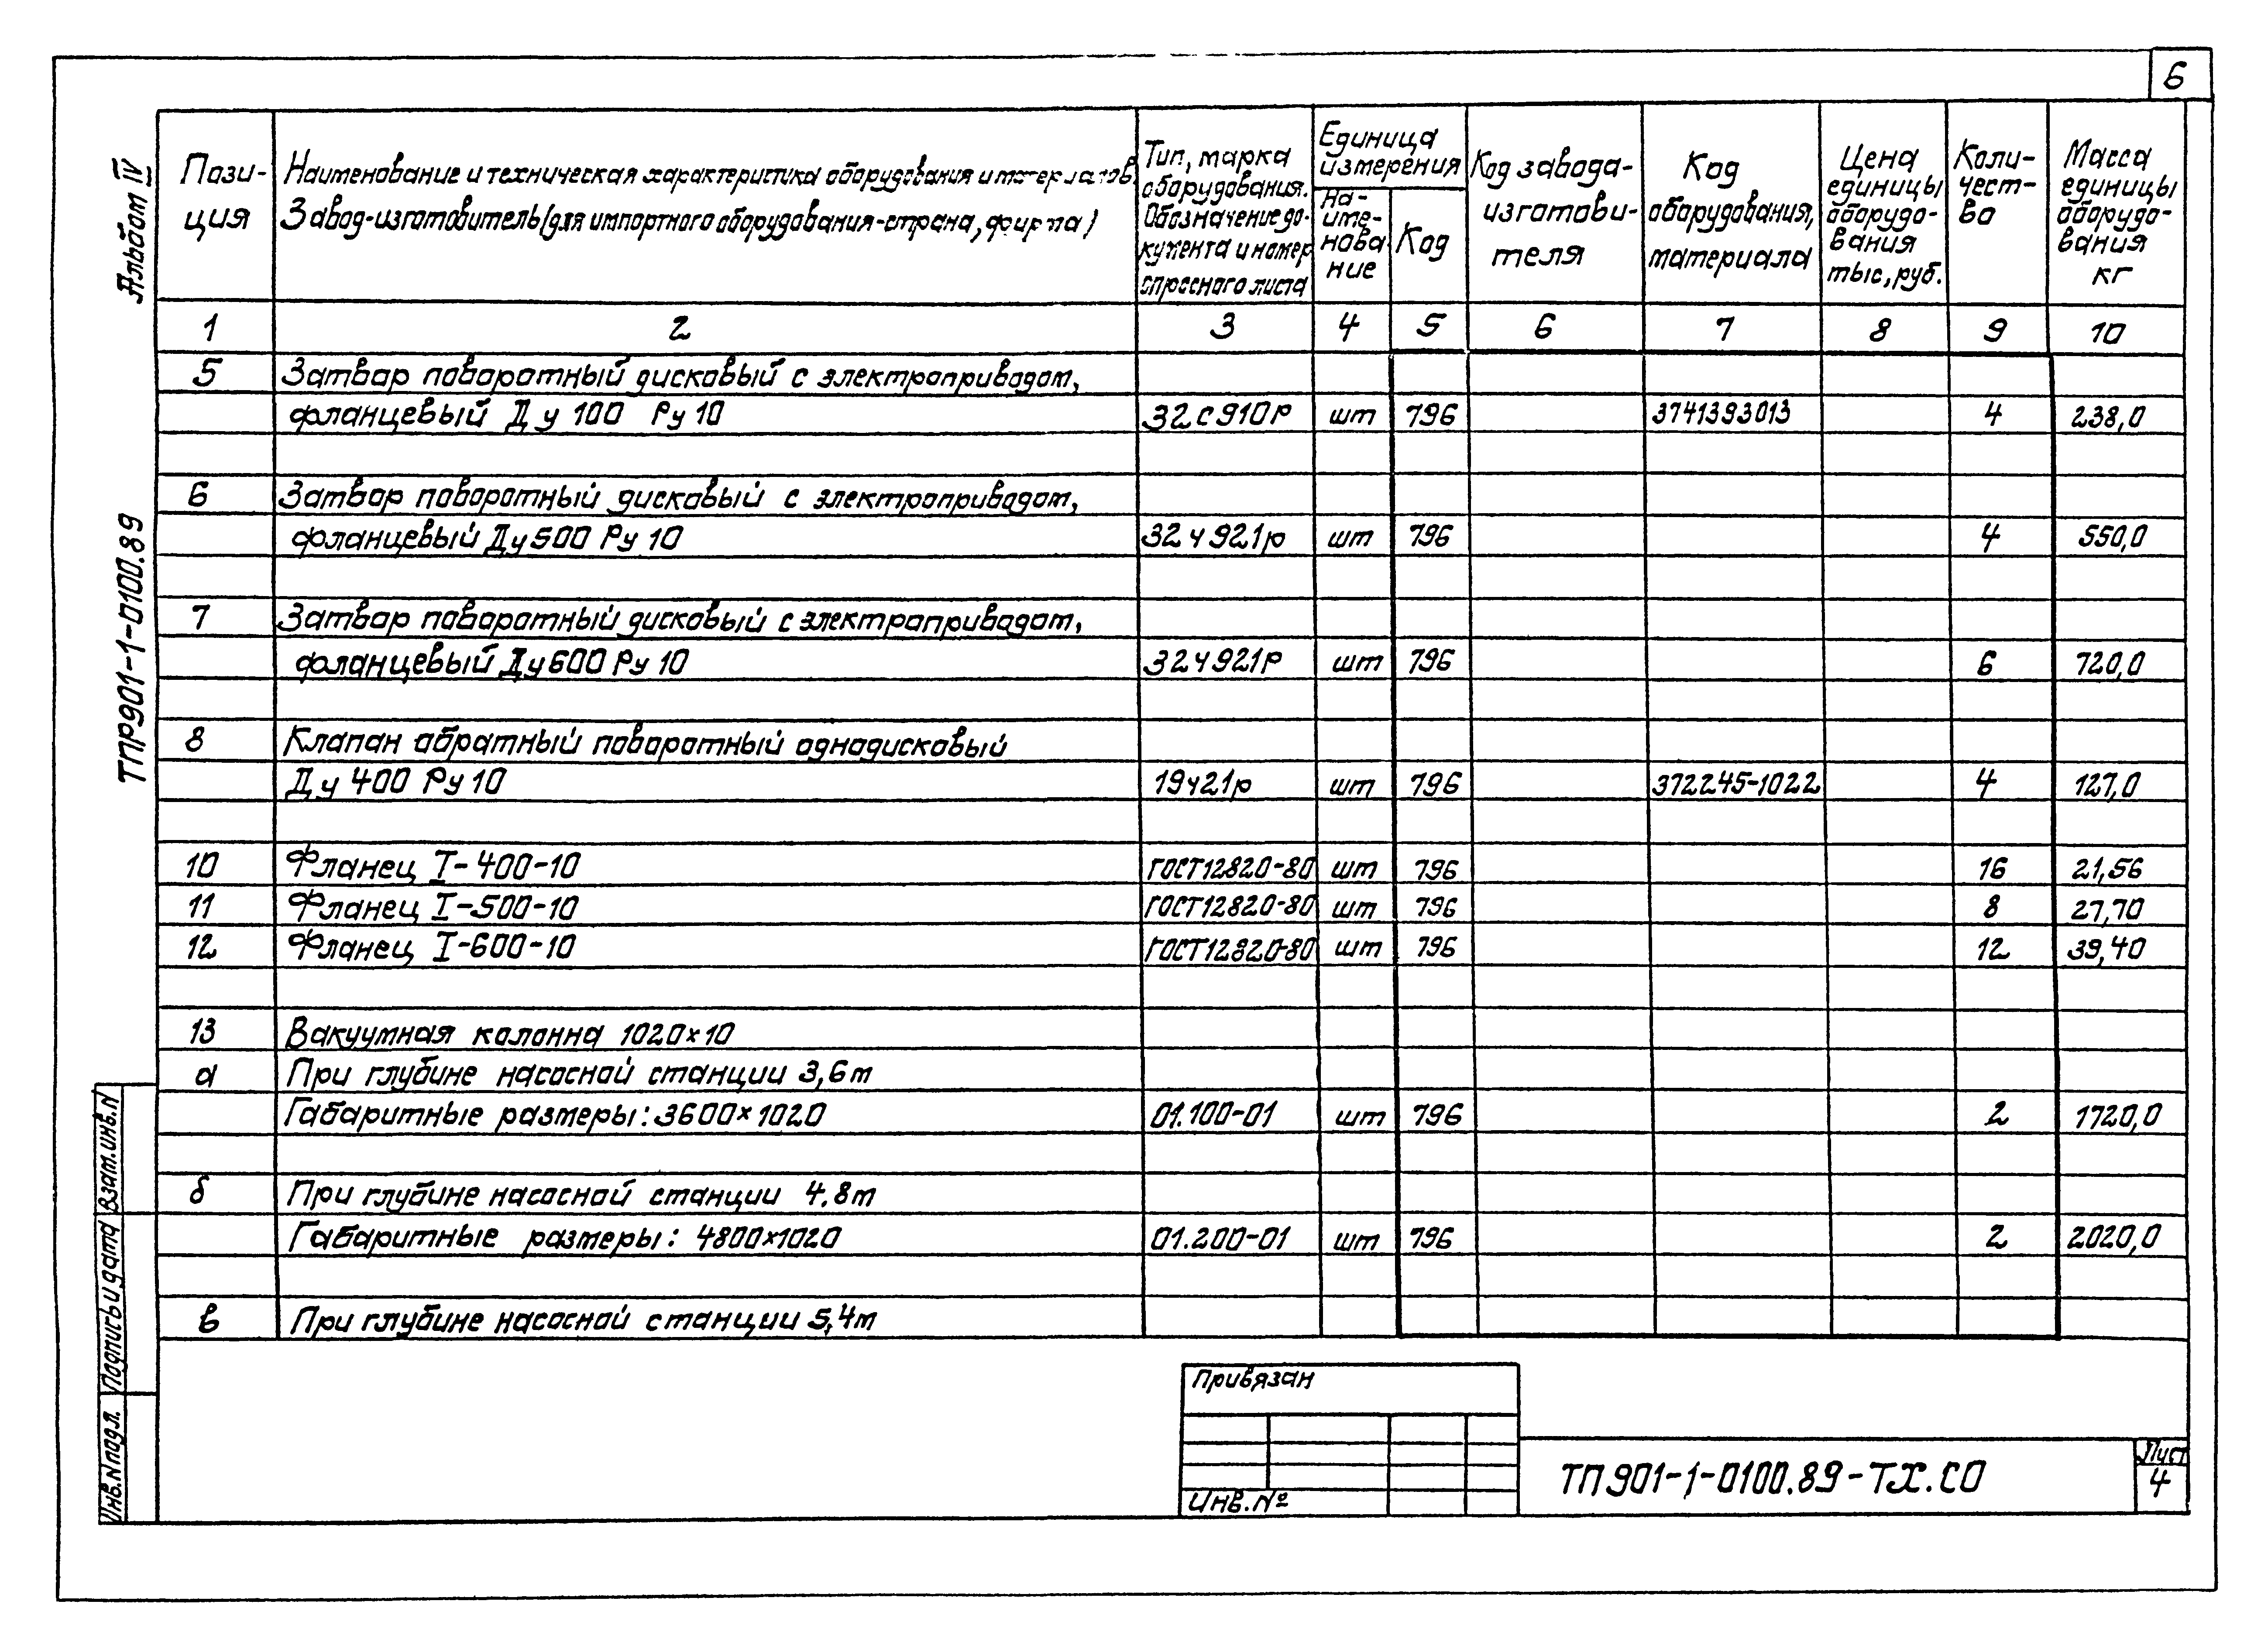 6
Альбом IV
ТПР901-1-0100.89
Пози-
ция
Наименование и техническая характеристика оборудования и материалов.
Завод-изготовитель (для импортного оборудования-страна, фирма)
Тип, марка
оборудования.
Обозначение до-
кумента и номер
опросного листа
Единица
измерения
На-
име-
нова
ние
Код
Код завода-
изготови-
теля
Код
оборудования,
материала
Цена
единицы
оборудо-
вания
тыс, руб.
Коли-
чест-
во
Масса
единицы
оборудо-
вания
кг
1 2 3 4 5 6 7 8 9 10
5 Затвор поворотный дисковый с электроприводом,
фланцевый Ду 100 Ру 10 32с910р шт 796 3741393013 4 238,0
6 Затвор поворотный дисковый с электроприводом,
фланцевый Ду 500 Ру 10 32ч921р шт 796 4 550,0
7 Затвор поворотный дисковый с электроприводом,
фланцевый Ду 600 Ру 10 32ч921р шт 796 6 720,0
8 Клапан обратный поворотный однодисковый
Ду 400 Ру 10 19ч21р шт 796 372245-1022 4 127,0
10 Фланец I-400-10 ГОСТ12820-80 шт 796 16 21,56
11 Фланец I-500-10 ГОСТ12820-80 шт 796 8 27,70
12 Фланец I-600-10 ГОСТ12820-80 шт 796 12 39,40
13 Вакуумная колонна 1020×10
а При глубине насосной станции 3,6м
Габаритные размеры: 3600×1020 01.100-01 шт 796 2 1720,0
б При глубине насосной станции 4.8м
Габаритные размеры: 4800×1020 01.200-01 шт 796 2 2020,0
в При глубине насосной станции 5,4м
Взам.инв.N
Подпись и дата
Инв.N подл.
Привязан
Инв.№
ТП901-1-0100.89-ТХ.СО
Лист
4